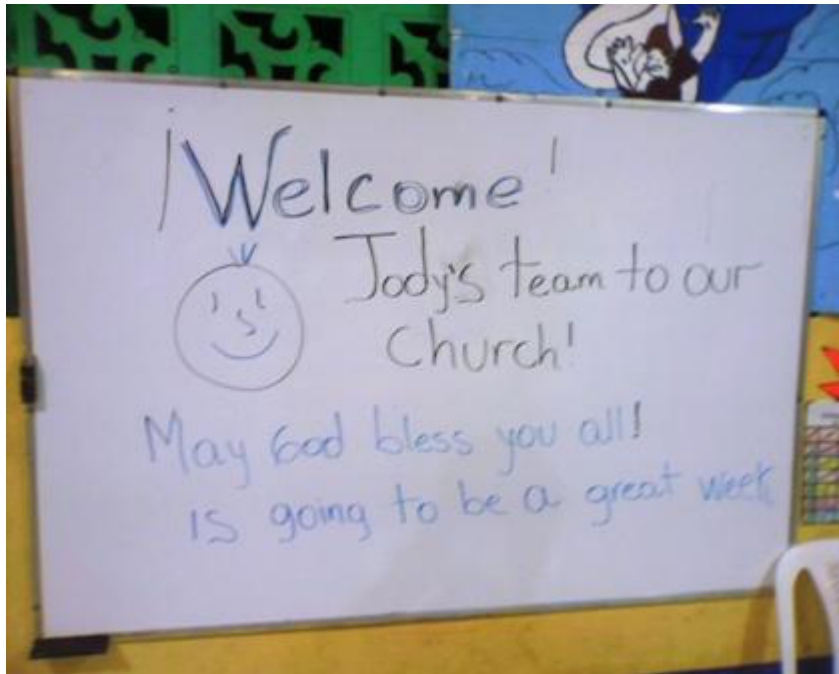 ¡Welcome!
Jody's team to our
Church!
May God bless you all!
is going to be a great week